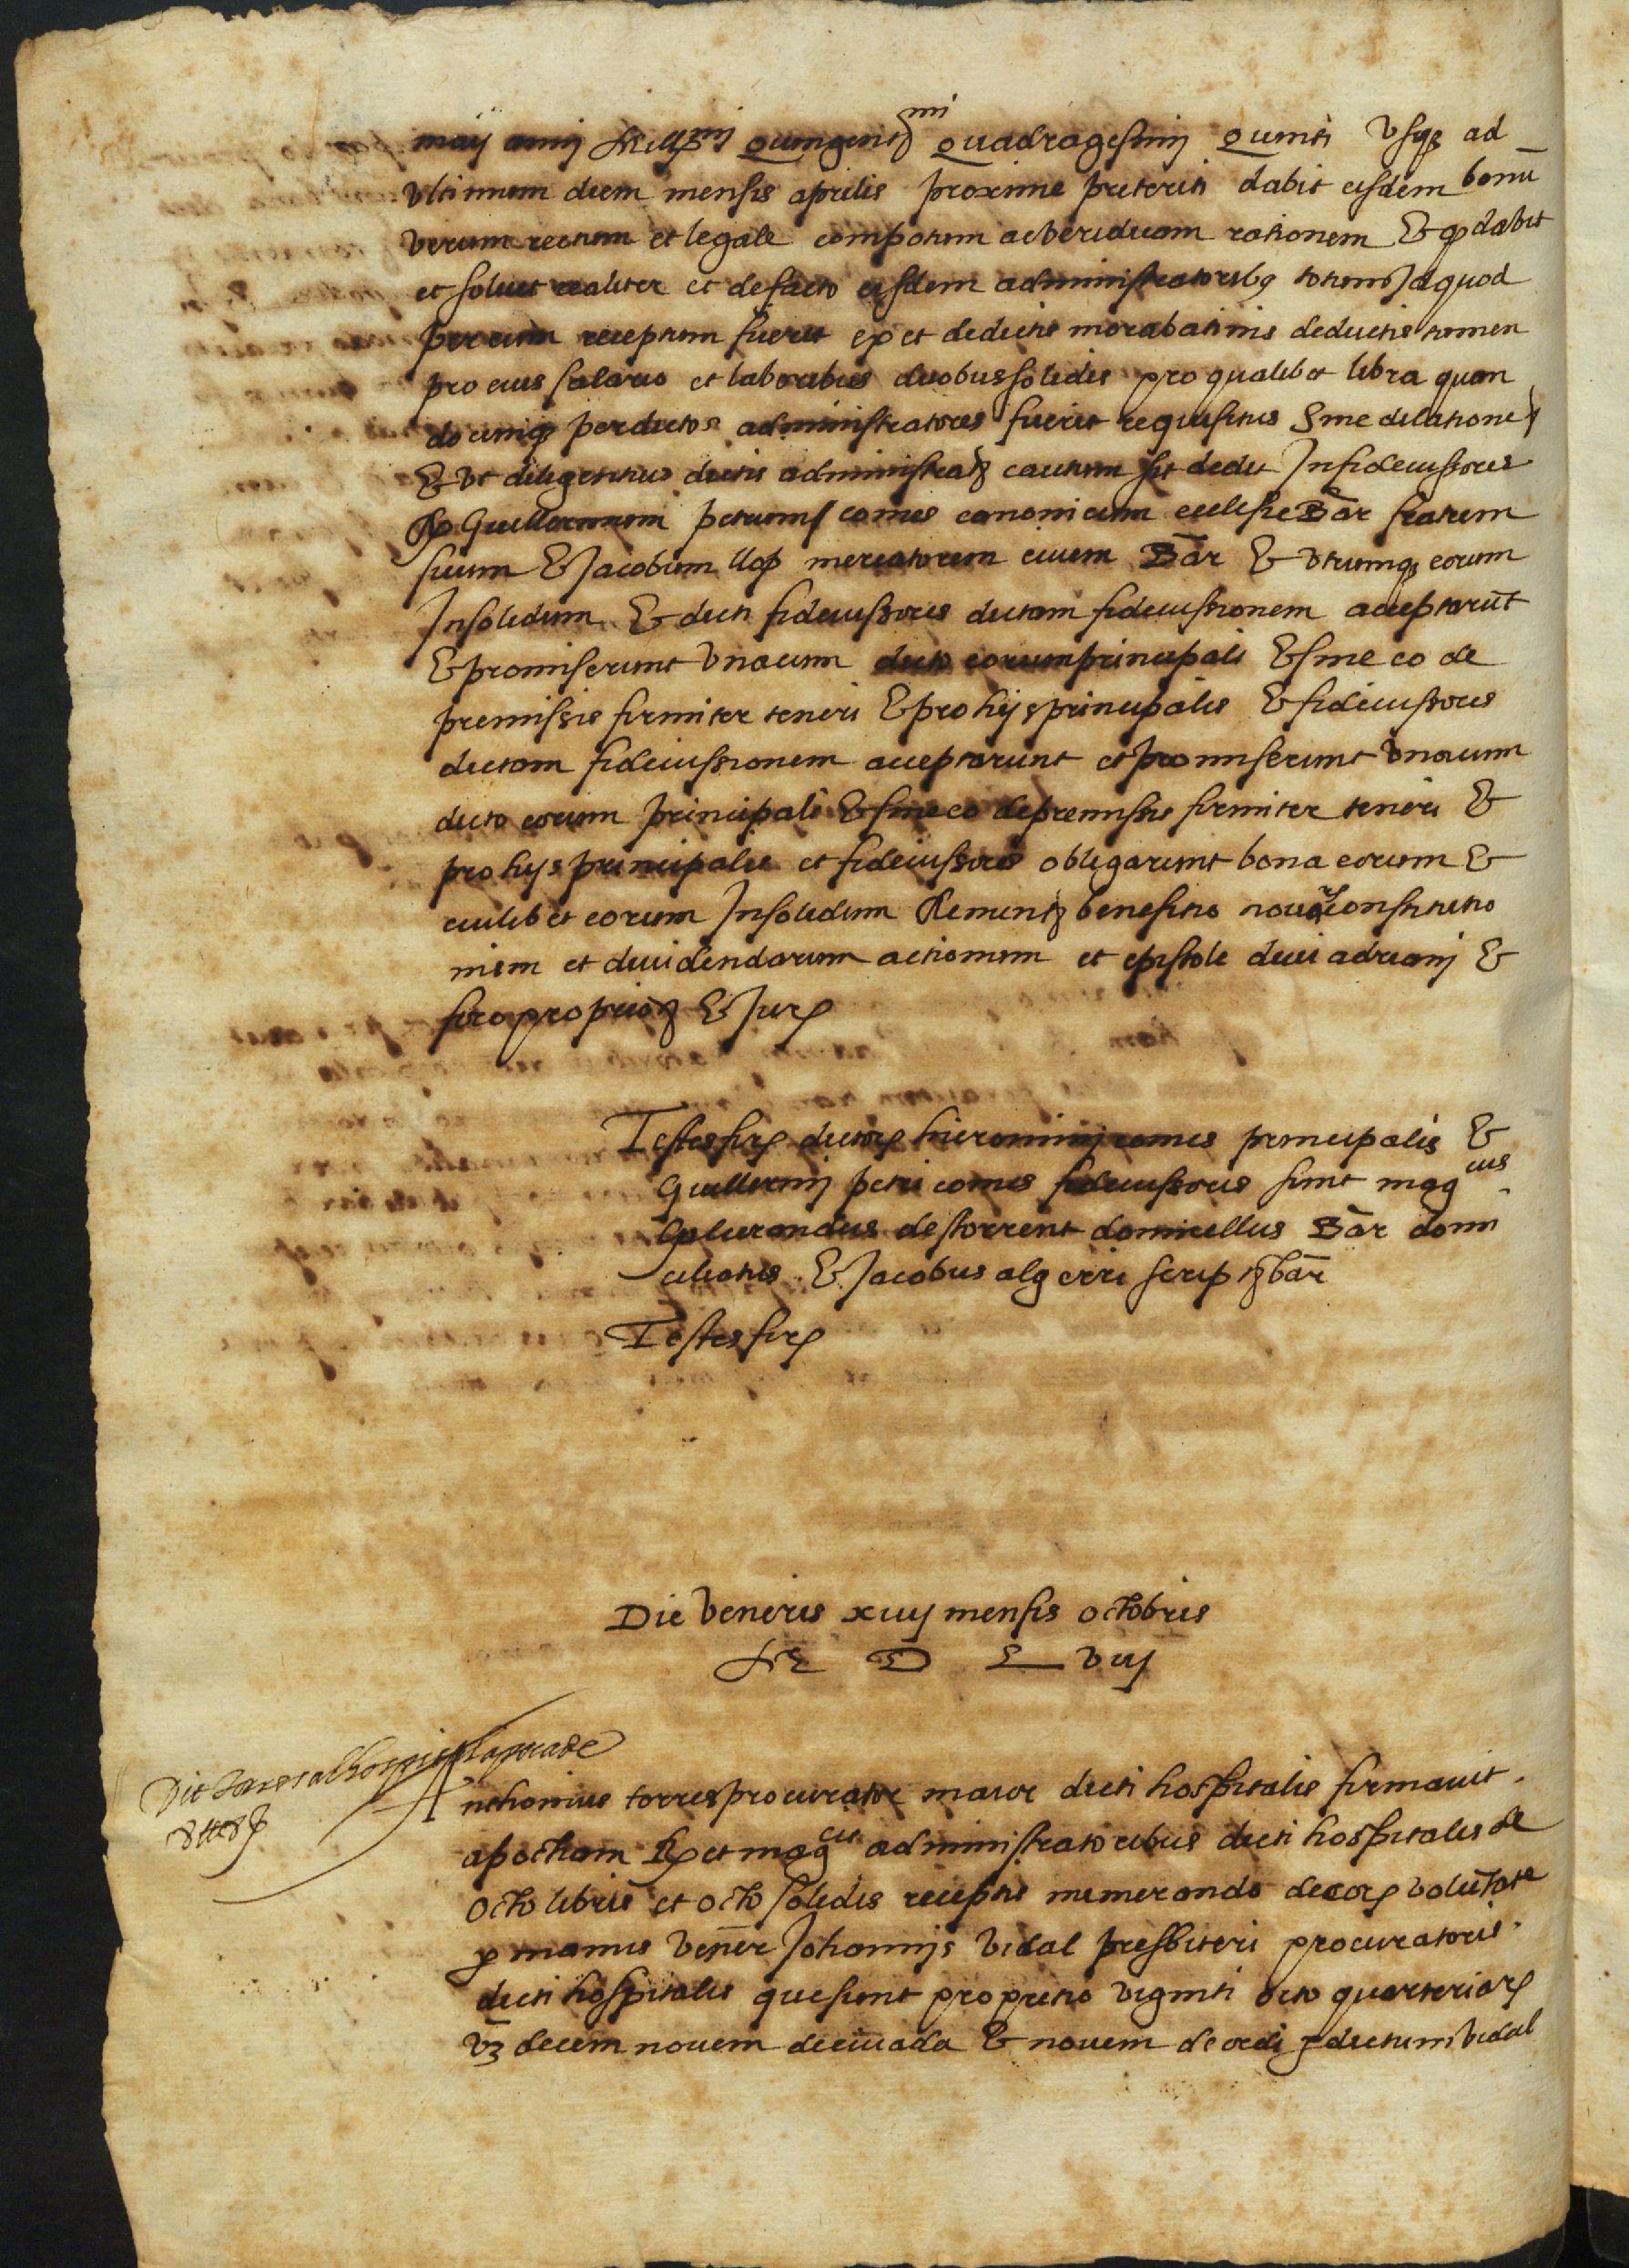 maij annj Mill.mj quingentmi Quadragesimj Quinti Vsq ad
Vltimum diem mensis aprilis proxime preteriti dabit eisdem bonū
verum rectum et legale compotum ac veridicam rationem & q dabit
et soluet realiter et de facto eisdem administratoribq totum Id quod
per eum receptum fuerit ex et dedictis morabatinis deductis tamen
pro eius salario et laboribus duobus solidis pro qualibet libra quan
do cumq per dictos administratores fuerit requisitus Sine dilatione
& Vt diligentius dictis administrat cautum sit dedit In fideiussores
R Guillermum petrum comes canonicum ecclesie Bar fratrem
suum & Jacobum llop mercatorem ciuem Bar & vtrumq eorum
Insolidum & dicti fideiussores dictam fideiussionem acceptarūt
& promiserunt Vnacum dicto eorum principali & sine eo de
premissis firmiter teneri & pro hijs principalis & fideiussores
dictam fideiussionem acceptarunt et promiserunt Vnacum
dicto eorum principali & sine eo de premissis firmiter teneri &
pro hijs principalis et fideiussores obligarunt bona eorum &
cuiuslibet eorum Insolidum Renunt beneficio nouar constitutio
num et diuidendarum actionum et epistole diui adrianj &
foro proprio & Jur
Testes fir dictor hieronimj comes principalis &
Guillermj petri comes fideiussoris sunt mag cus
Galcerandus destorrent domicellus Bar domi
ciliatus & Jacobus algerri scrip bar
Testes fir
Die Veneris xiiij mensis octobris
M D L viij
Anthonius torres procurator maior dicti hospitalis firmauit
apocham R et mag cis administratoribus dicti hospitalis de
octo libris et octo solidis receptis numerando de eor volūtate
p manus Vener Johannis Vidal presbiteri procuratoris
dicti hospitalis que sunt pro pretio viginti octo quarteriar
vz decem nouem de ciuada & nouem de ordi p dictum vidal